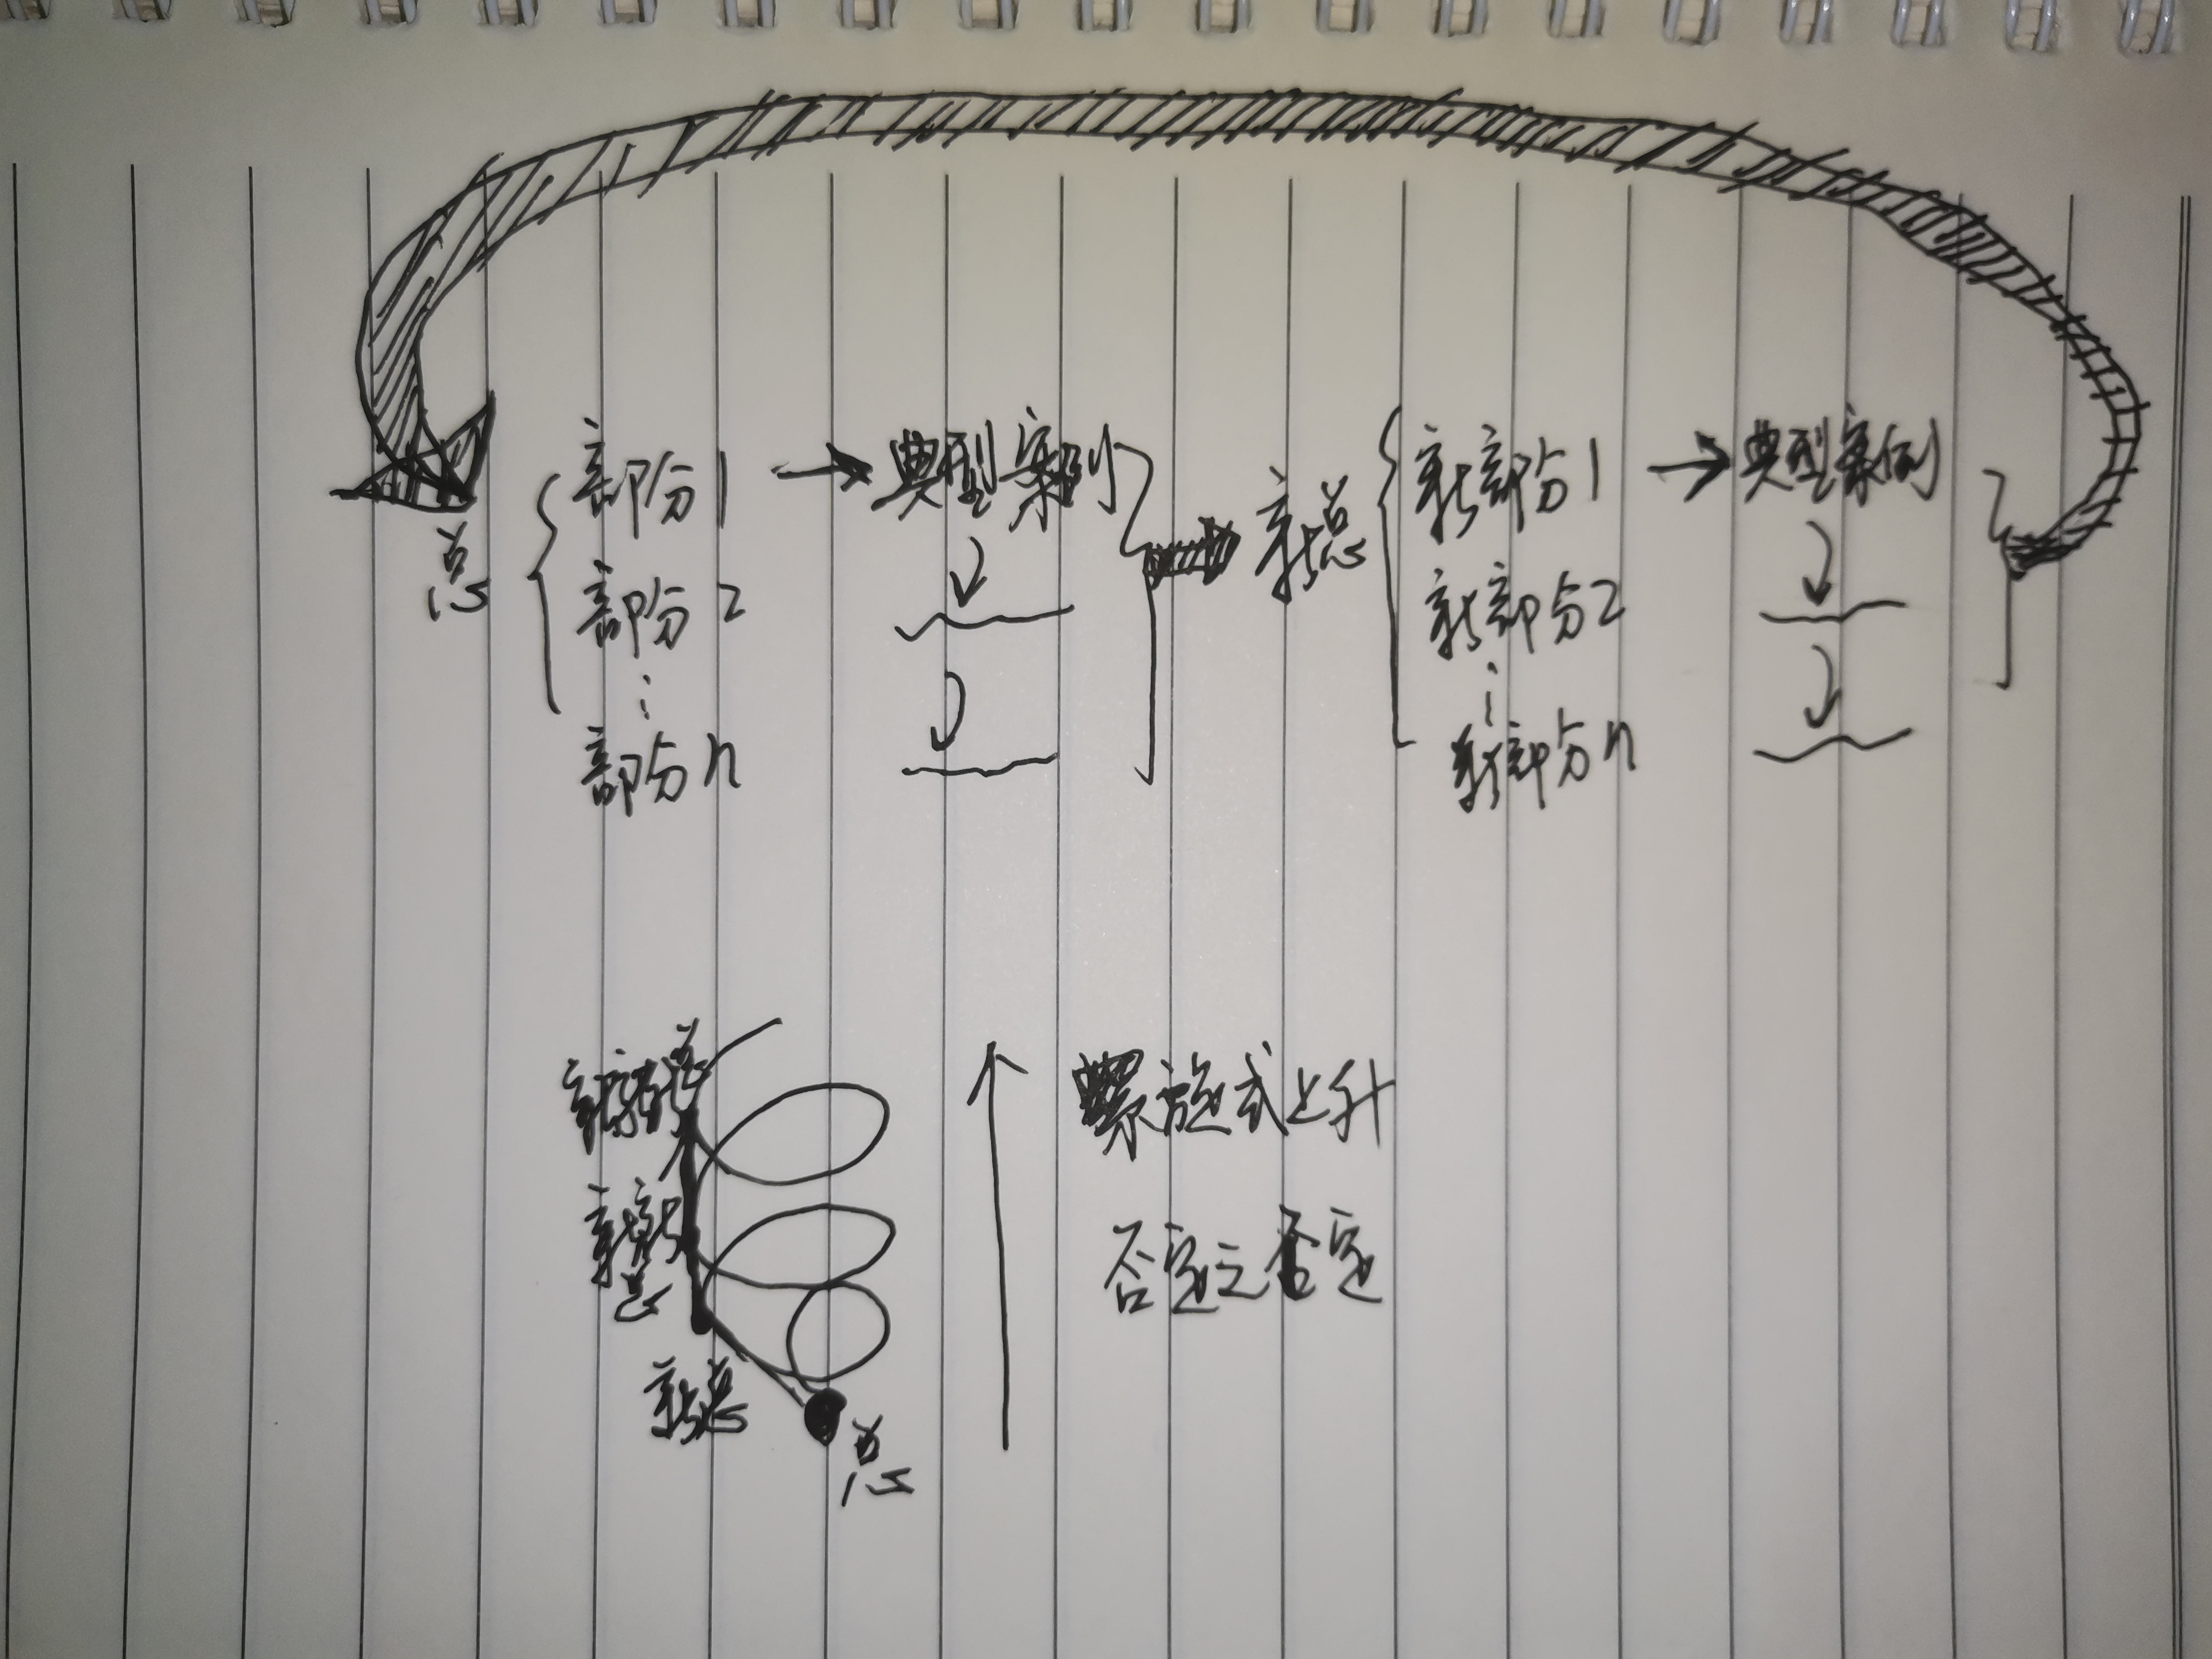 总
部分1 → 典型案例
部分2
⋮
部分n
新总
新部分1 → 典型案例
新部分2
⋮
新部分n
螺旋式上升
否定之否定
新新总
新总
总